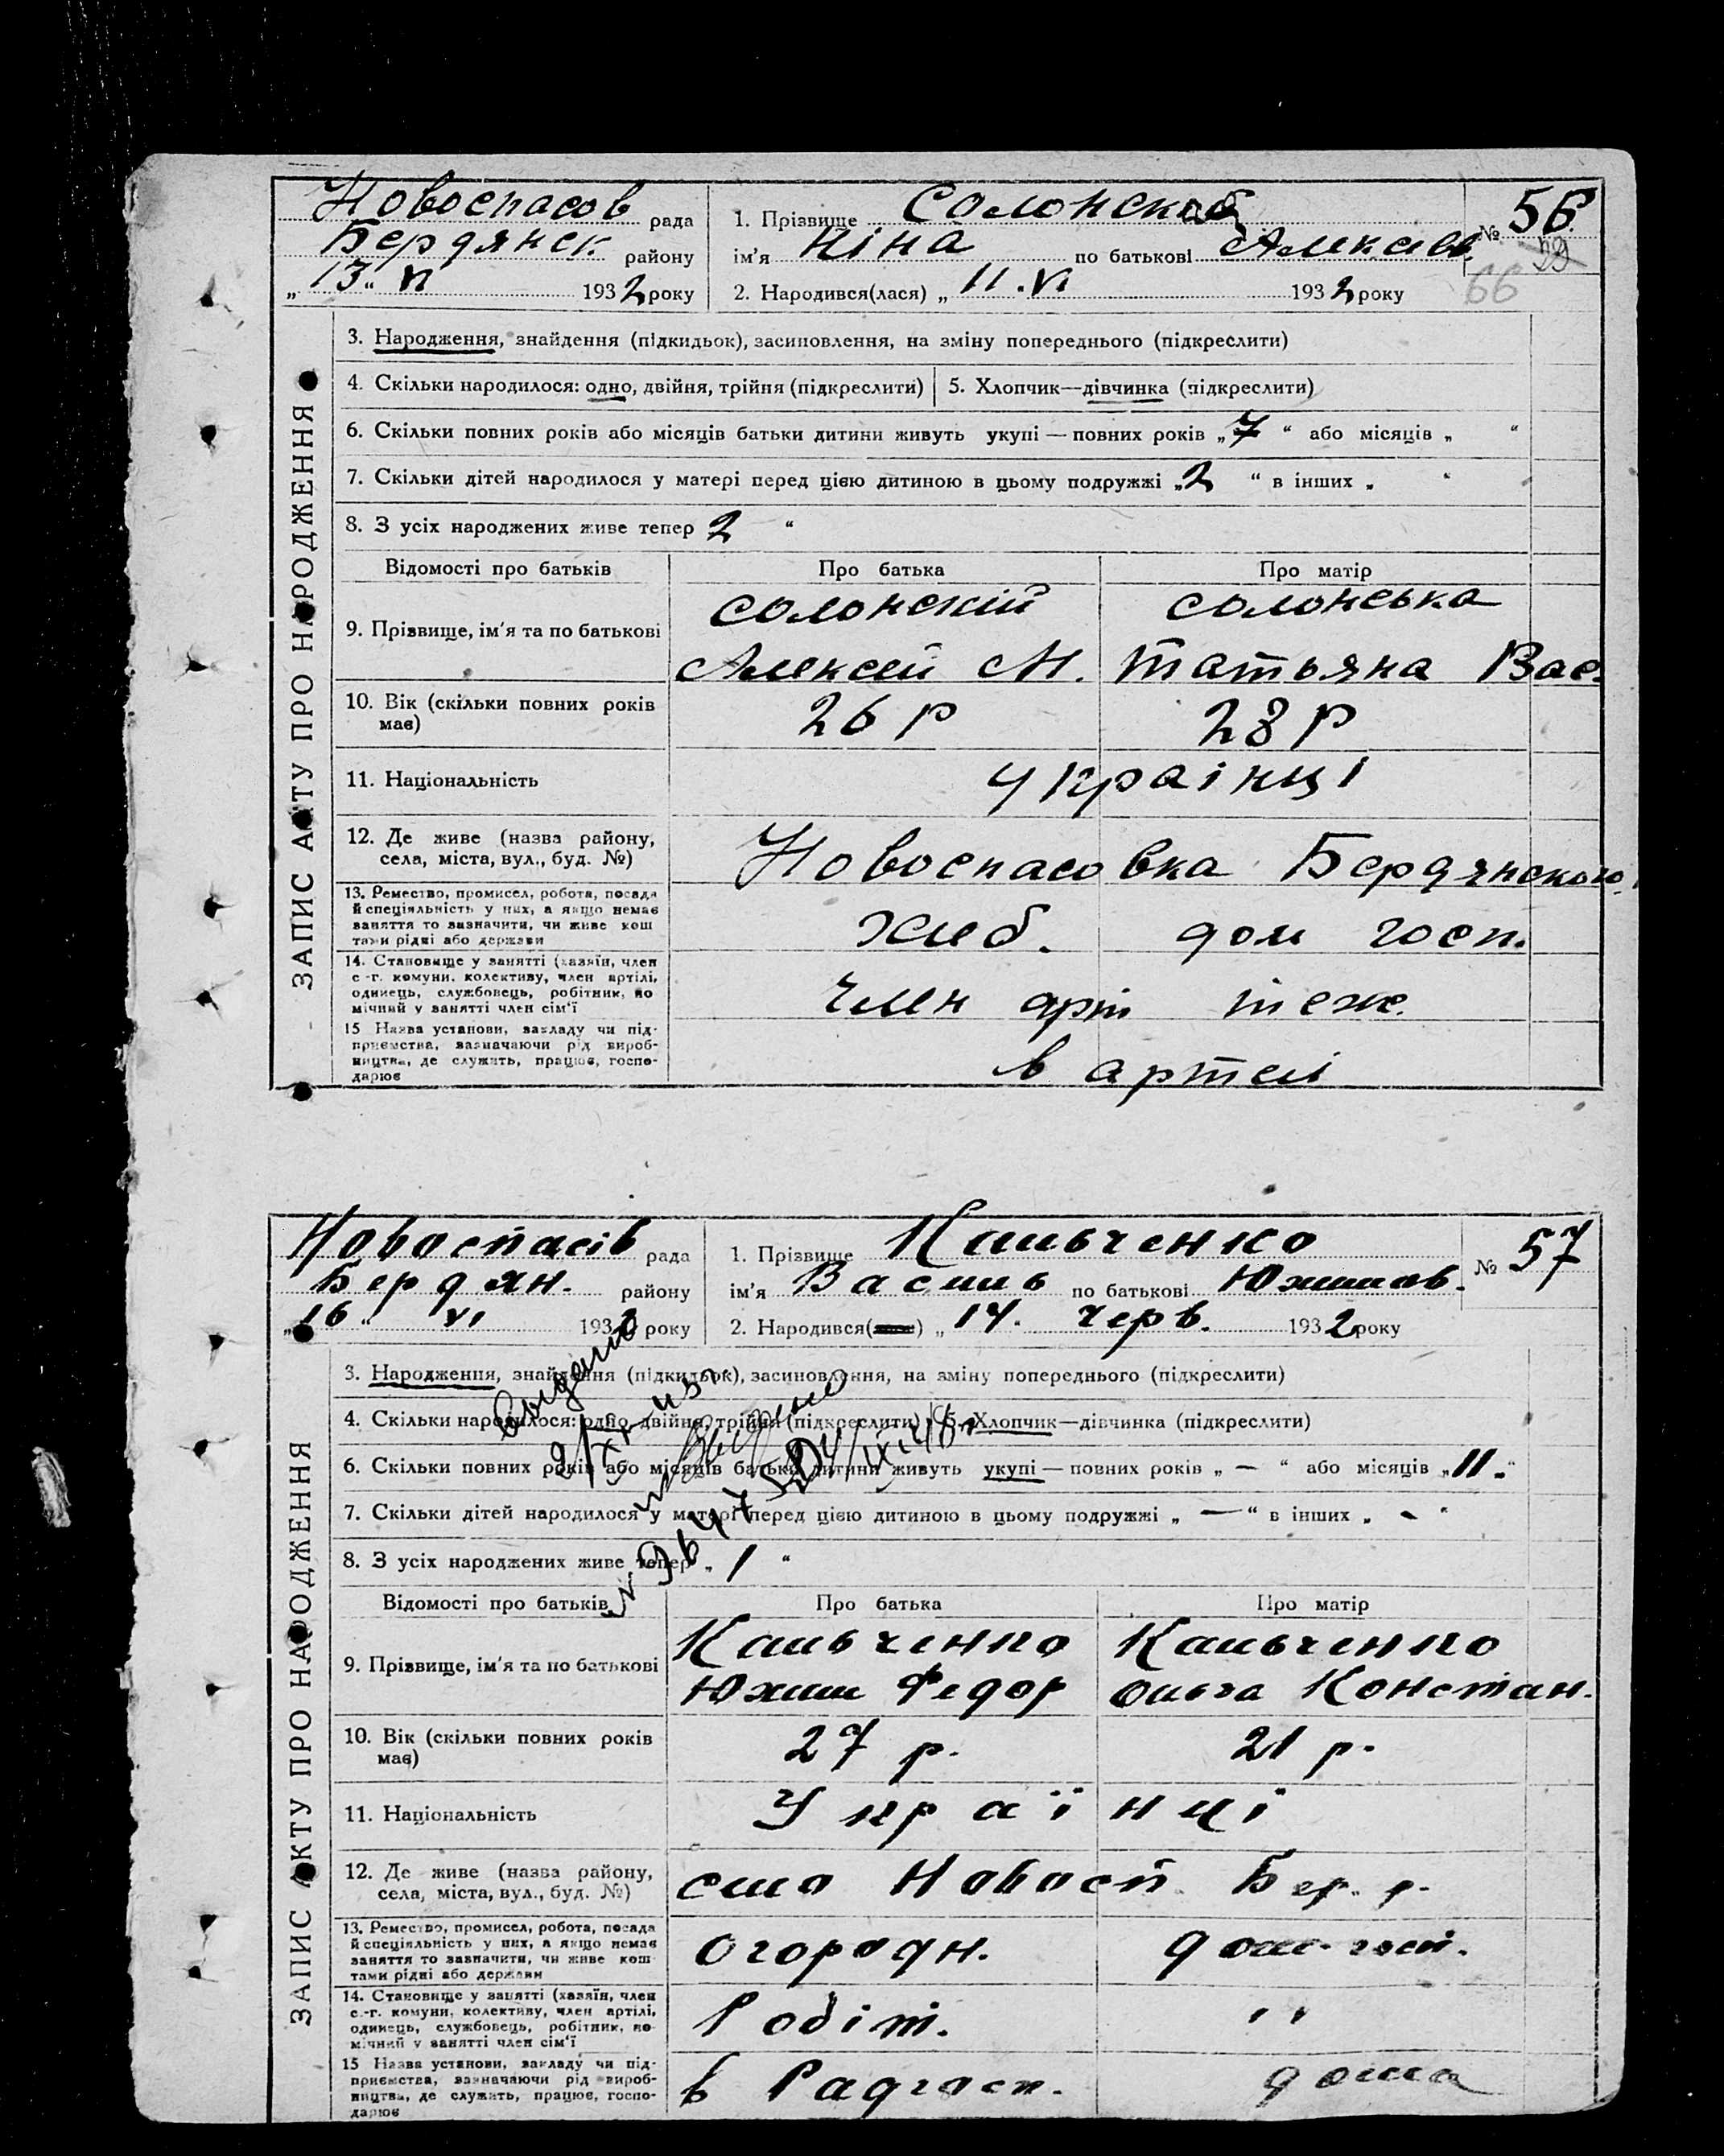 Новоспасов рада
Бердянск. районy
„13“ VI 1932 року
1. Прізвище Солонская
ім'я Ніна по батькові Алексеев.
2. Народився(лася) „11.VI 1932 року
№ 56
59
66
ЗАПИС АКТУ ПРО НАРОДЖЕННЯ
3. Народження, знайдення (підкидьок), засиновлення, на зміну попереднього (підкреслити)
4. Скільки народилося: одно, двійня, трійня (підкреслити) 5. Хлопчик—дівчинка (підкреслити)
6. Скільки повних років або місяців батьки дитини живуть укупі — повних років „7“ або місяців „ “
7. Скільки дітей народилося у матері перед цією дитиною в цьому подружжі „2 “ в інших „ “
8. З усіх народжених живе тепер 2 “
Відомості про батьків Про батька Про матір
9. Прізвище, ім'я та по батькові
Солонский Солонська
Алексей М. Татьяна Вас.
10. Вік (скільки повних років має) 26 р 28 р
11. Національність українці
12. Де живе (назва району, села, міста, вул., буд. №) Новоспасовка Бердянского
13. Ремество, промисел, робота, посада
й спеціяльність у них, а якщо немає
заняття то зазначити, чи живе кош
тами рідні або держави
Хліб. дом госп.
14. Становище у занятті (хазяїн, член
с.-г. комуни, колективу, член артілі,
одинець, службовець, робітник, по
мічний у занятті член сім'ї
член арт теж.
15 Назва установи, закладу чи під-
приємства, зазначаючи рід вироб-
ництва, де служить, працює, госпо-
дарює
в артелі
Новоспасів рада
Бердян. району
„16“ VI 1932 року
1. Прізвище Кальченко
ім'я Василь по батькові Юхимов.
2. Народився( ) „14. черв. 1932 року
№ 57
ЗАПИС АКТУ ПРО НАРОДЖЕННЯ
3. Народження, знайдення (підкидьок), засиновлення, на зміну попереднього (підкреслити)
4. Скільки народилося: одно, двійня, трійня (підкреслити) 5. Хлопчик—дівчинка (підкреслити)
6. Скільки повних років або місяців батьки дитини живуть укупі — повних років „ — “ або місяців „11.“
7. Скільки дітей народилося у матері перед цією дитиною в цьому подружжі „ — “ в інших „ - “
8. З усіх народжених живе тепер „ 1 “
Відомості про батьків Про батька Про матір
9. Прізвище, ім'я та по батькові
Кальченко Кальченко
Юхим Федор Ольга Констан.
10. Вік (скільки повних років має) 27 р. 21 р.
11. Національність Українці
12. Де живе (назва району, села, міста, вул., буд. №) село Новосп. Бер. р.
13. Ремество, промисел, робота, посада
й спеціяльність у них, а якщо немає
заняття то зазначити, чи живе кош-
тами рідні або держави
Огородн. дом. госп.
14. Становище у занятті (хазяїн, член
с.-г. комуни, колективу, член артілі,
одинець, службовець, робітник, по-
мічний у занятті член сім'ї
Робіт. " "
15 Назва установи, закладу чи під-
приємства, зазначаючи рід вироб-
ництва, де служить, працює, госпо-
дарює
в Радгосп. дома